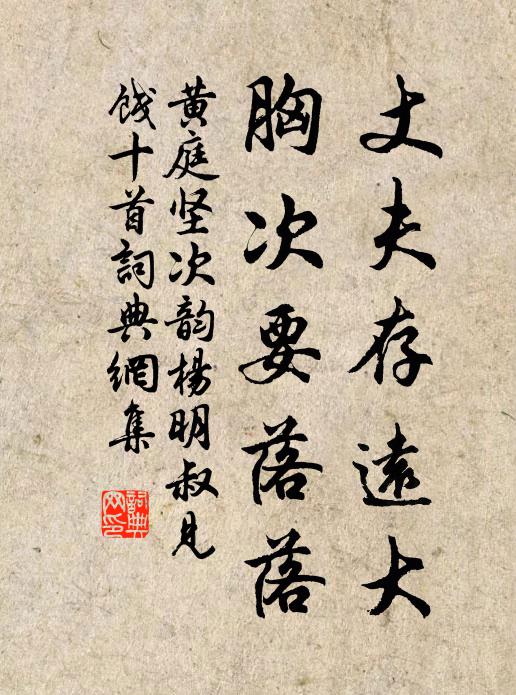 丈夫存遠大
胸次要落落
黄庭坚次韵楊明叔见
餞十首詞典網集
詞典
网印